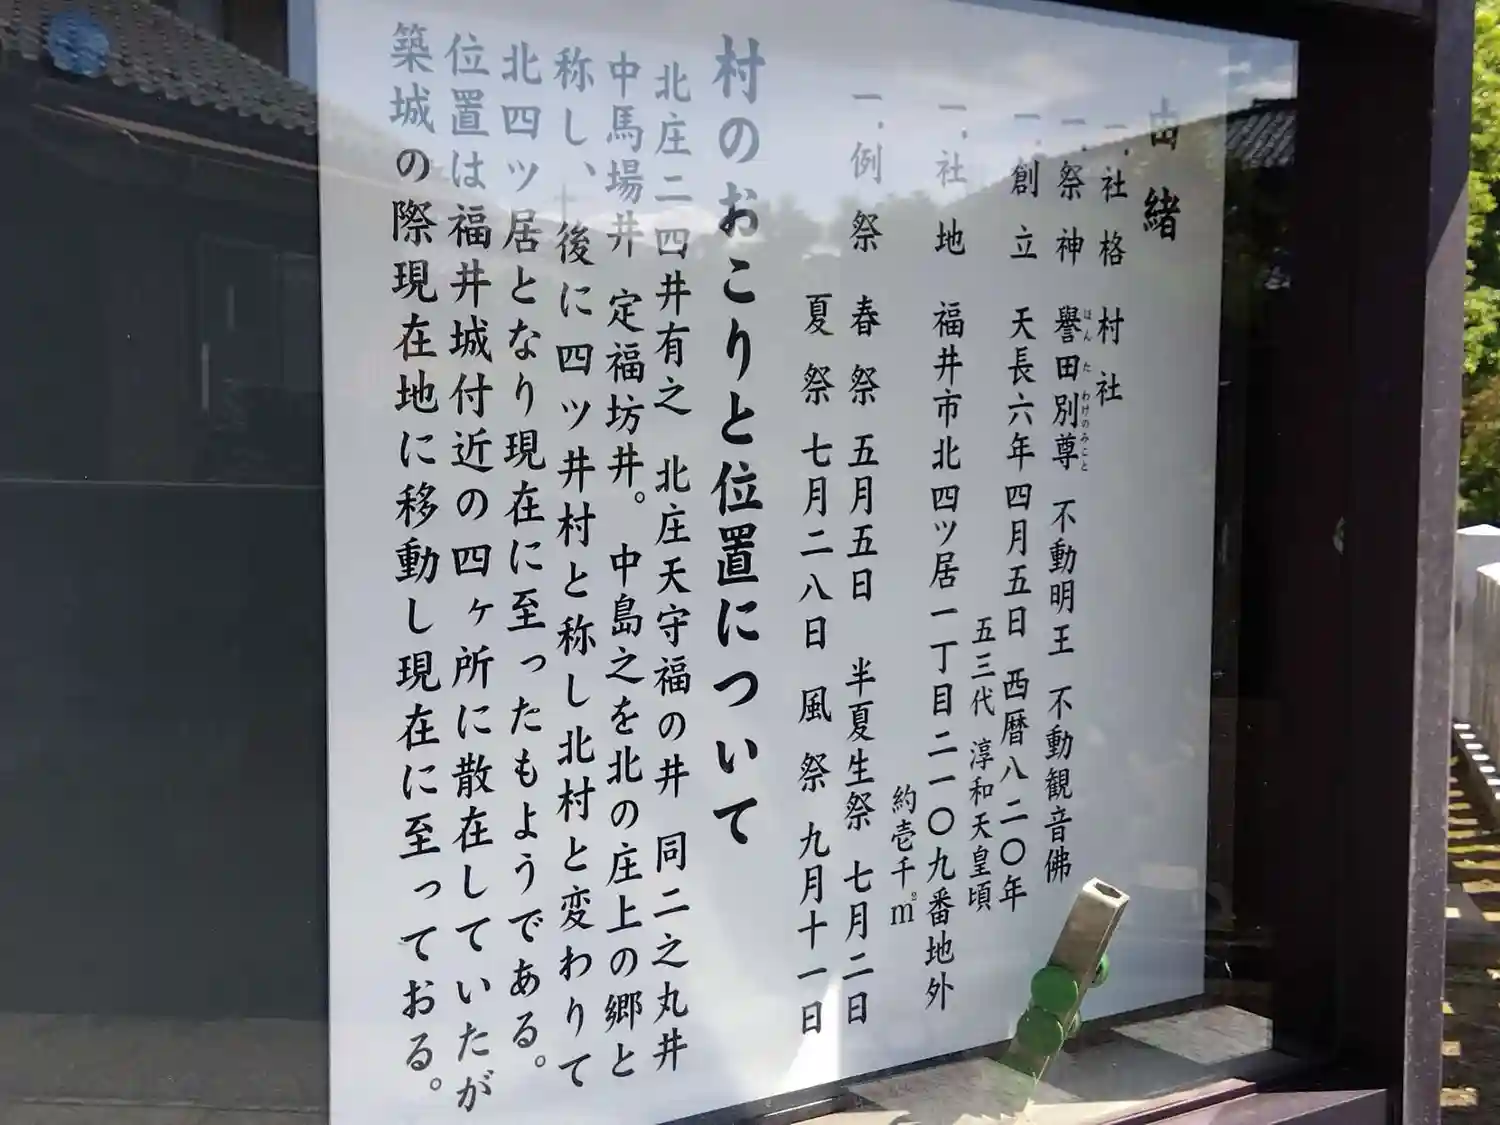 由緒
一.社格 村社
一.祭神 譽田別尊 不動明王 不動観音佛
ほんたわけのみこと
一.創立 天長六年四月五日 西暦八二〇年
五三代 淳和天皇頃
一.社地 福井市北四ツ居一丁目二一〇九番地外
約壱千㎡
一.例祭 春祭 五月五日 半夏生祭 七月二日
夏祭 七月二八日 風祭 九月十一日
村のおこりと位置について
北庄二四井有之 北庄天守福の井 同二之丸井
中馬場井 定福坊井。中島之を北の庄上の郷と
称し、後に四ツ井村と称し北村と変わりて
北四ツ居となり現在に至ったもようである。
位置は福井城付近の四ヶ所に散在していたが
築城の際現在地に移動し現在に至っておる。